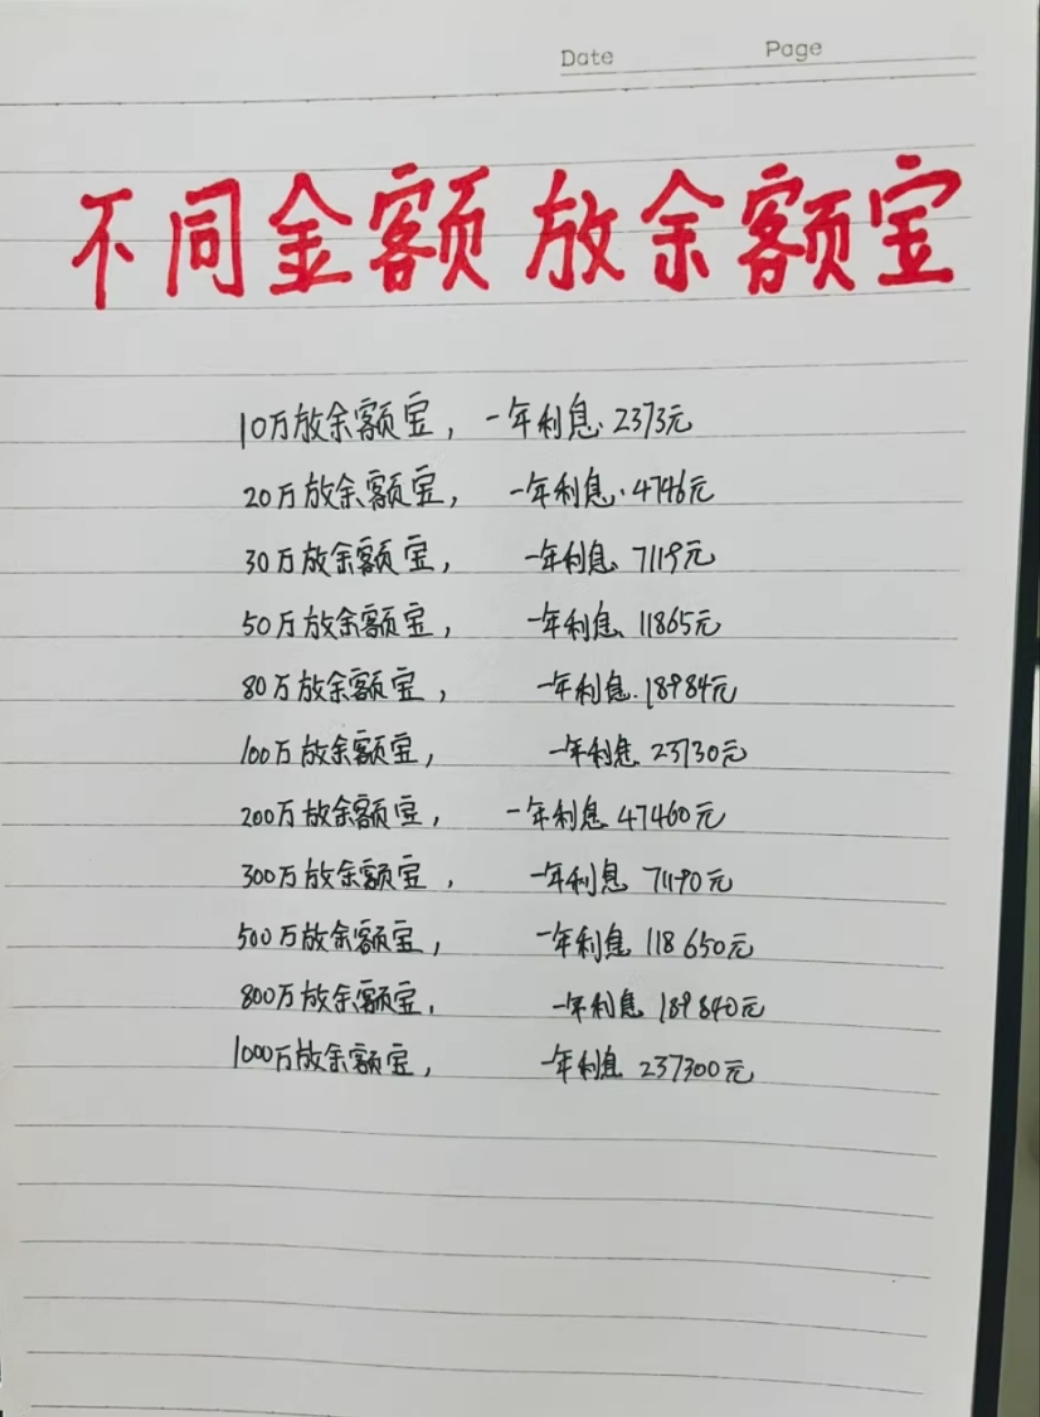 Date Page
不同金额放余额宝
10万放余额宝，一年利息.2373元
20万放余额宝，一年利息.4746元
30万放余额宝，一年利息、7119元
50万放余额宝，一年利息、11865元
80万放余额宝，一年利息.18984元
100万放余额宝，一年利息.23730元
200万放余额宝，一年利息 47460元
300万放余额宝，一年利息 71190元
500万放余额宝，一年利息 118650元
800万放余额宝，一年利息 189840元
1000万放余额宝，一年利息 237300元